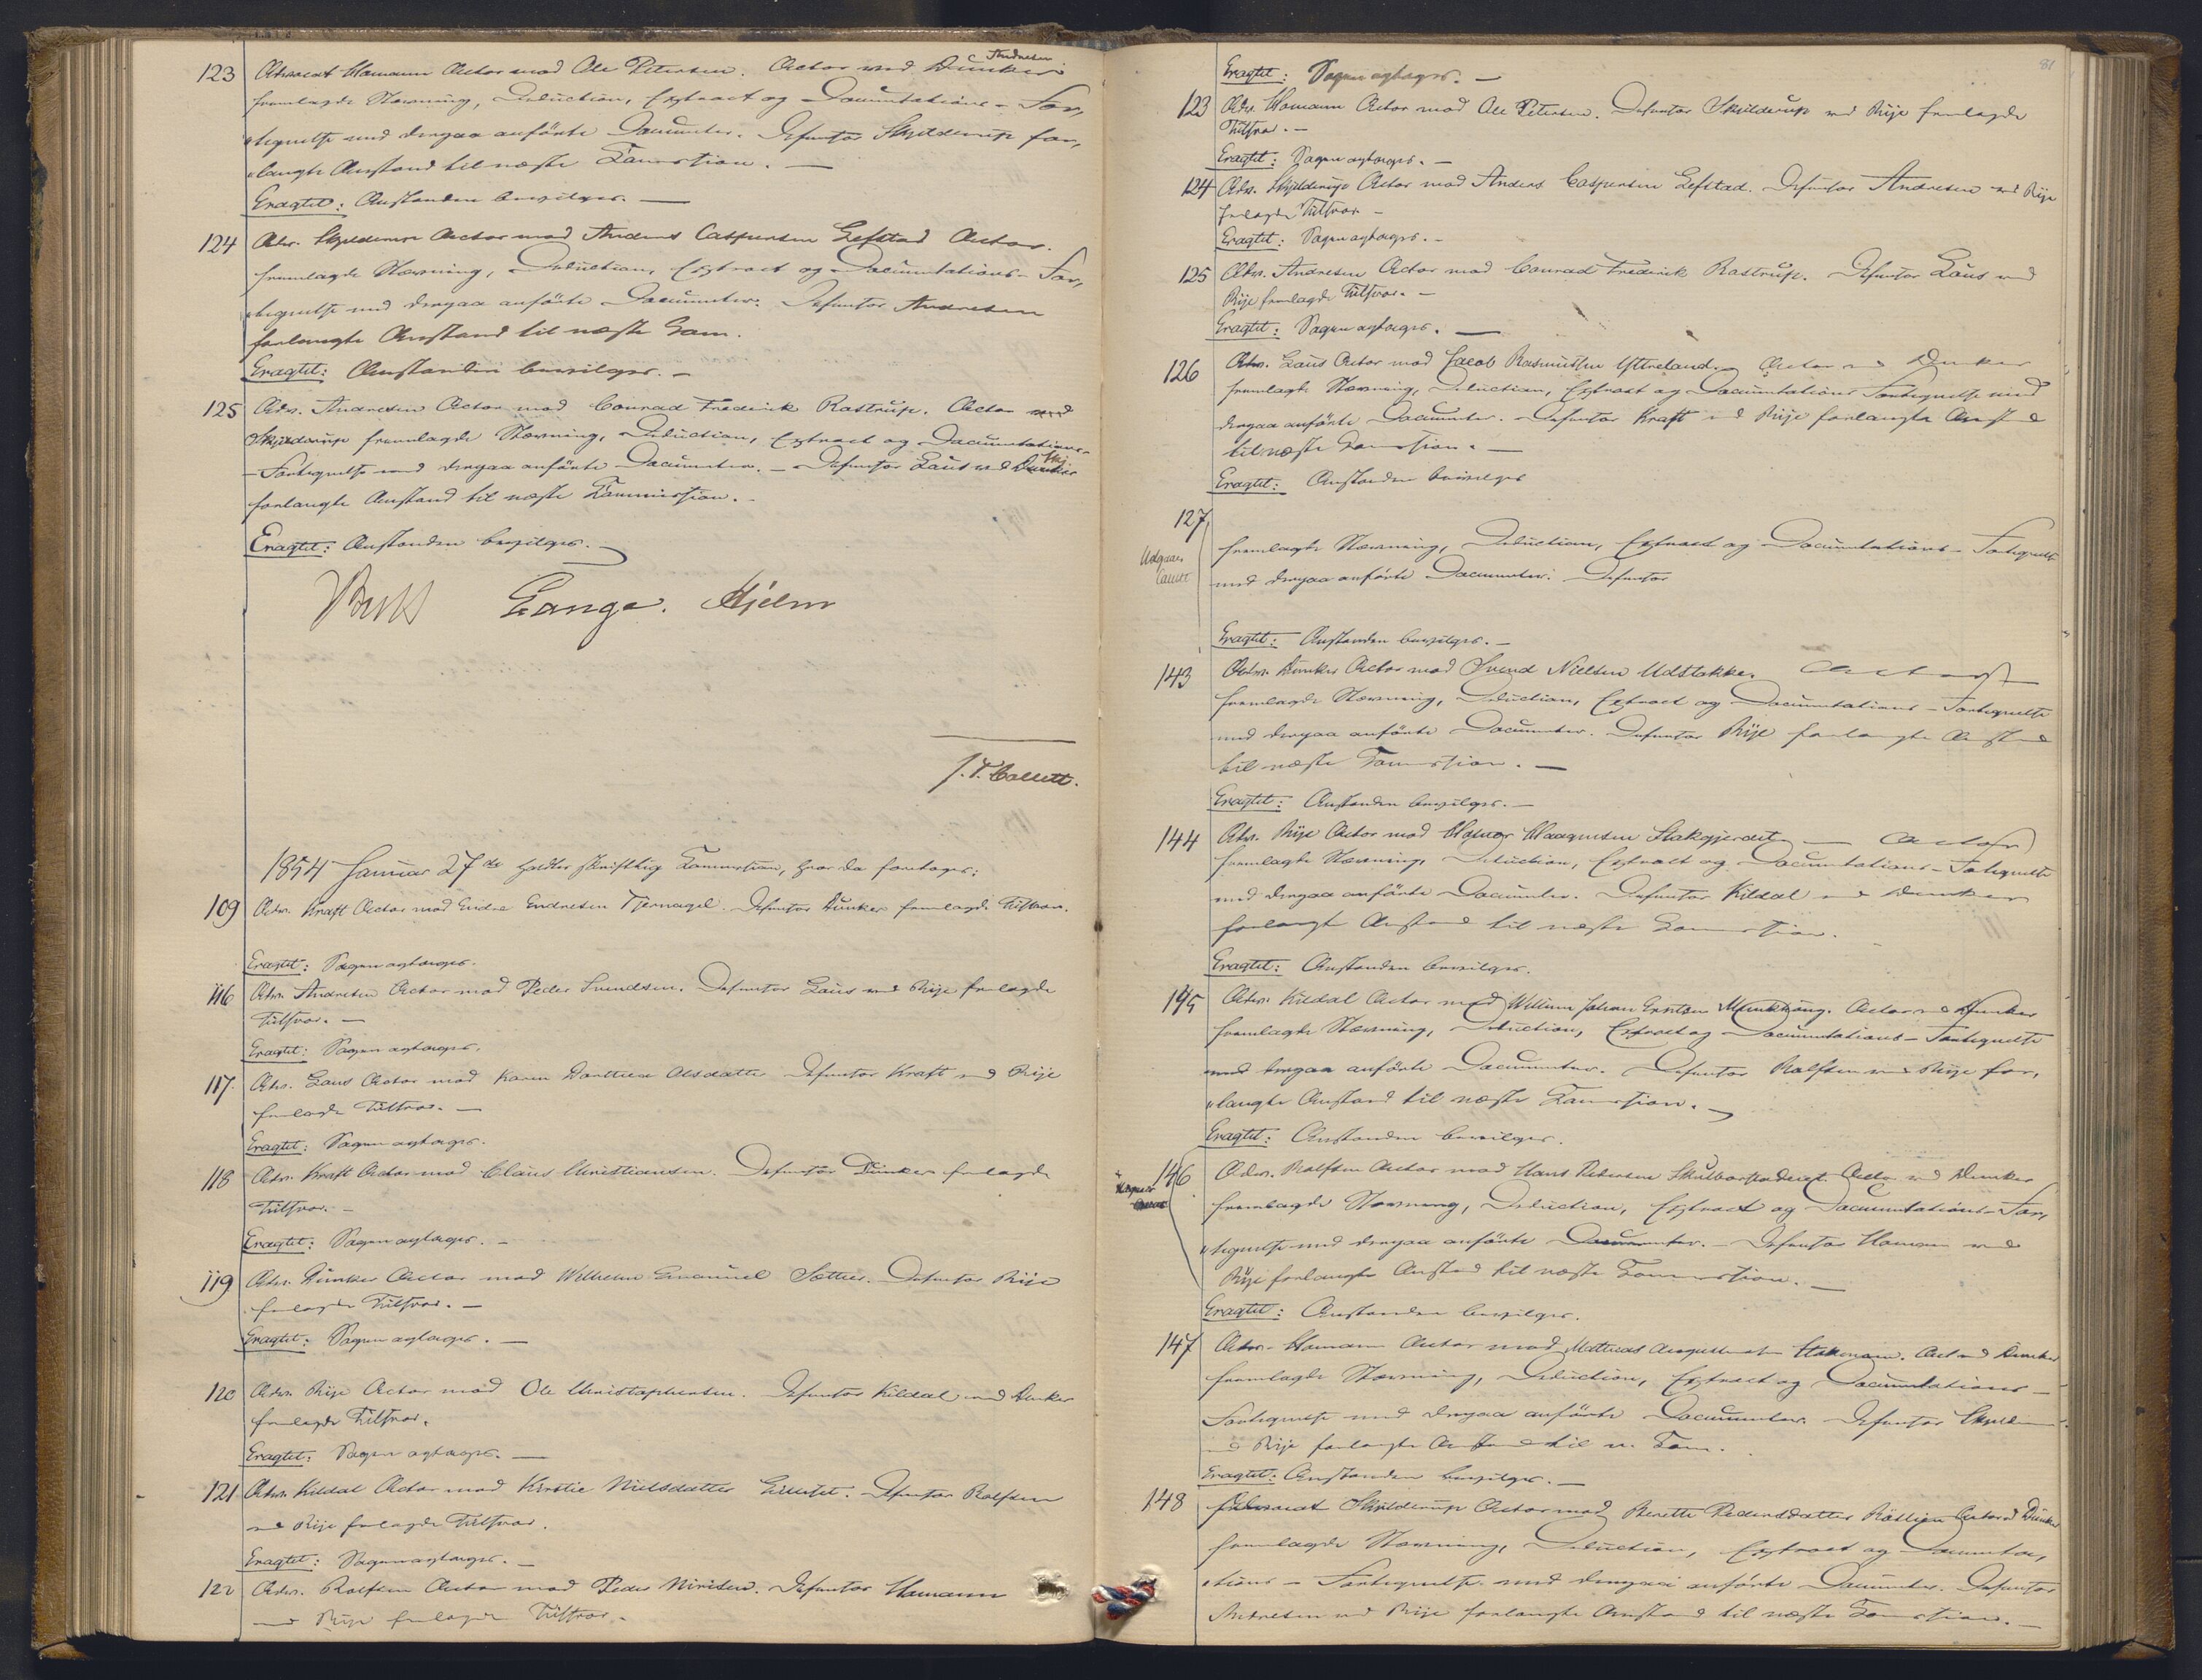 123 Advocat Hamann Actor mod Ole Petersen. Actor ved Dunker Andresen
fremlagde Stævning, Deduction, Extract og Documentations-For„
„tegnelse med derpaa anförte Documenter. Defensor Skjelderup for„
„langte Anstand til næste Kammersion. —
Eragtet: Anstanden bevilges. —
124 Adv. Skjelderup Actor mod Anders Caspersen Lefstad Actor.
fremlagde Stævning, Deduction, Extract og Documentations-For„
„tegnelse med derpaa anförte Documenter. Defensor Andresen
forlangte Anstand til næste Sam.
Eragtet: Anstanden bevilges. —
125 Adv. Andresen Actor mod Conrad Frederik Rastrup. Actor ved
Skjelderup fremlagde Stævning, Deduction, Extract og Documentations-
-Fortegnelse med derpaa anförte Documenter. — Defensor Laus ved Dunker
forlangte Anstand til næste Kammersion. -
Eragtet: Anstanden bevilges. —
Lange. Hjelm
J. F. Collett.
1854 Januar 27de holdtes skriftlig Kammersion, hvor da foretoges:
109 Adv. Kraft Actor mod Endre Endresen Tjernagel. Defensor Dunker fremlagde Tilsvar.
Eragtet: Sagen optages.
116 Adv. Andresen Actor mod Peder Svendsen. Defensor Laus ved Rije fremlagde
Tilsvar. —
Eragtet: Sagen optages.
117. Adv. Laus Actor mod Karen Dorthea Olsdatter Defensor Kraft ved Rije
fremlagde Tilsvar. —
Eragtet: Sagen optages.
118 Adv. Kraft Actor mod Claus Christiansen. Defensor Dunker fremlagde
Tilsvar. —
Eragtet: Sagen optages. —
119 Adv. Dunker Actor mod Wilhelm Emanuel Sæther. Defensor Rije
fremlagde Tilsvar. —
Eragtet: Sagen optages. —
120 Adv. Rije Actor mod Ole Christophersen. Defensor Kildal ved Dunker
fremlagde Tilsvar.
Eragtet: Sagen optages. —
121 Adv. Kildal Actor mod Kirstie Nielsdatter. Defensor Rolfsen
ved Rije fremlagde Tilsvar.
Eragtet: Sagen optages. —
122 Adv. Rolfsen Actor mod Peder. Defensor Hamann
ved Rije fremlagde Tilsvar. -
81
Eragtet: Sagen optages. —
123 Adv. Hamann Actor mod Ole Petersen. Defensor Skjelderup ved Rije fremlagde
Tilsvar. —
Eragtet: Sagen optages. —
124 Adv. Skjelderup Actor mod Anders Caspersen Lefstad. Defensor Andresen ved Rije
fremlagde Tilsvar —
Eragtet: Sagen optages. -
125 Adv. Andresen Actor mod Conrad Frederik Rastrup. Defensor Laus ved
Rije fremlagde Tilsvar. —
Eragtet: Sagen optages. —
126 Adv. Laus Actor mod Jacob Rasmussen Ytreland. Actor ved Dunker
fremlagde Stævning, Deduction, Extract og Documentations Fortegnelse med
derpaa anförte Documenter. Defensor Kraft ved Rije forlangte Anstand
til næste Kammersion. —
Eragtet: Anstanden bevilges
127
Udgaaer
fremlagde Stævning, Deduction, Extract og Documentations-Fortegnelse
med derpaa anförte Documenter. Defensor
Eragtet: Anstanden bevilges. —
143 Adv. Dunker Actor mod Svend Nielsen Udstakke. Actor
fremlagde Stævning, Deduction, Extract og Documentations-Fortegnelse
med derpaa anförte Documenter. Defensor Rije forlangte Anstand
til næste Kammersion. —
Eragtet: Anstanden bevilges. —
144 Adv. Rije Actor mod Haagensen Stakgjerdet — Actor
fremlagde Stævning, Deduction, Extract og Documentations-Fortegnelse
med derpaa anförte Documenter. Defensor Kildal ved Dunker
forlangte Anstand til næste Kammersion.
Eragtet: Anstanden bevilges.
145 Adv. Kildal Actor mod Willum Johan Erntsen. Actor ved Dunker
fremlagde Stævning, Deduction, Extract og Documentations-Fortegnelse
med derpaa anförte Documenter. Defensor Rolfsen ved Rije for„
„langte Anstand til næste Kammersion. —
Eragtet: Anstanden bevilges.
146 Adv. Rolfsen Actor mod Hans Pedersen. Actor ved Dunker
fremlagde Stævning, Deduction, Extract og Documentations-For„
„tegnelse med derpaa anförte Documenter. — Defensor Hamann ved
Rije forlangte Anstand til næste Kammersion. —
Eragtet: Anstanden bevilges.
147 Adv. Hamann Actor mod Mathias. Act ved Dunker
fremlagde Stævning, Deduction, Extract og Documentations-
Fortegnelse med derpaa anförte Documenter. Defensor Skjeld
ved Rije forlangte Anstand til n. Kam.
Eragtet: Anstanden bevilges. —
148 Advocat Skjelderup Actor mod Berette Pedersdatter Actor ved Dunker
fremlagde Stævning, Deduction, Extract og Documenta„
„tions-Fortegnelse med derpaa anförte Documenter. Defensor
Andresen ved Rije forlangte Anstand til næste Kammersion. —